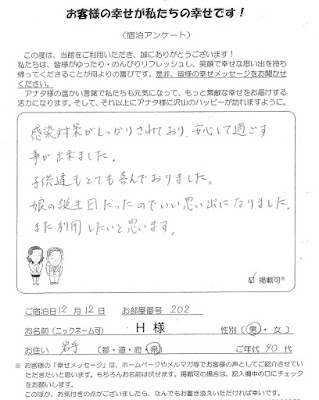 お客様の幸せが私たちの幸せです！
（宿泊アンケート）
この度は、当館をご利用いただき、誠にありがとうございます！
私たちは、皆様がゆったり・のんびりリフレッシュし、笑顔で幸せな思い出を持ち
帰ってくださることが何よりの喜びです。是非、皆様の幸せメッセージをお聞かせ
ください。
アナタ様の温かい言葉で私たちも元気になって、もっと素敵な幸せをお届けする
活力になります。そして、それ以上にアナタ様に沢山のハッピーが訪れますように。
感染対策がしっかりされており、安心して過ごす
事が出来ました。
子供達もとても喜んでおりました。
娘の誕生日だったのでいい思い出になりました。
また利用したいと思います。
掲載可
ご宿泊日 12月 12日 お部屋番号 202
お名前（ニックネーム可） H 様 性別（男・女）
お住い 岩手（都・道・府・県） ご年代 40代
※ お客様の「幸せメッセージ」は、ホームページやメルマガ等でお客様の声としてご紹介させてい
ただきたいと思います。もちろんお名前は伏せます。掲載可の場合は、記入欄中の口にチェック
をお願いします。
このほか、お気付きの点がございましたら、なんでもお書き添えいただければ幸いです。